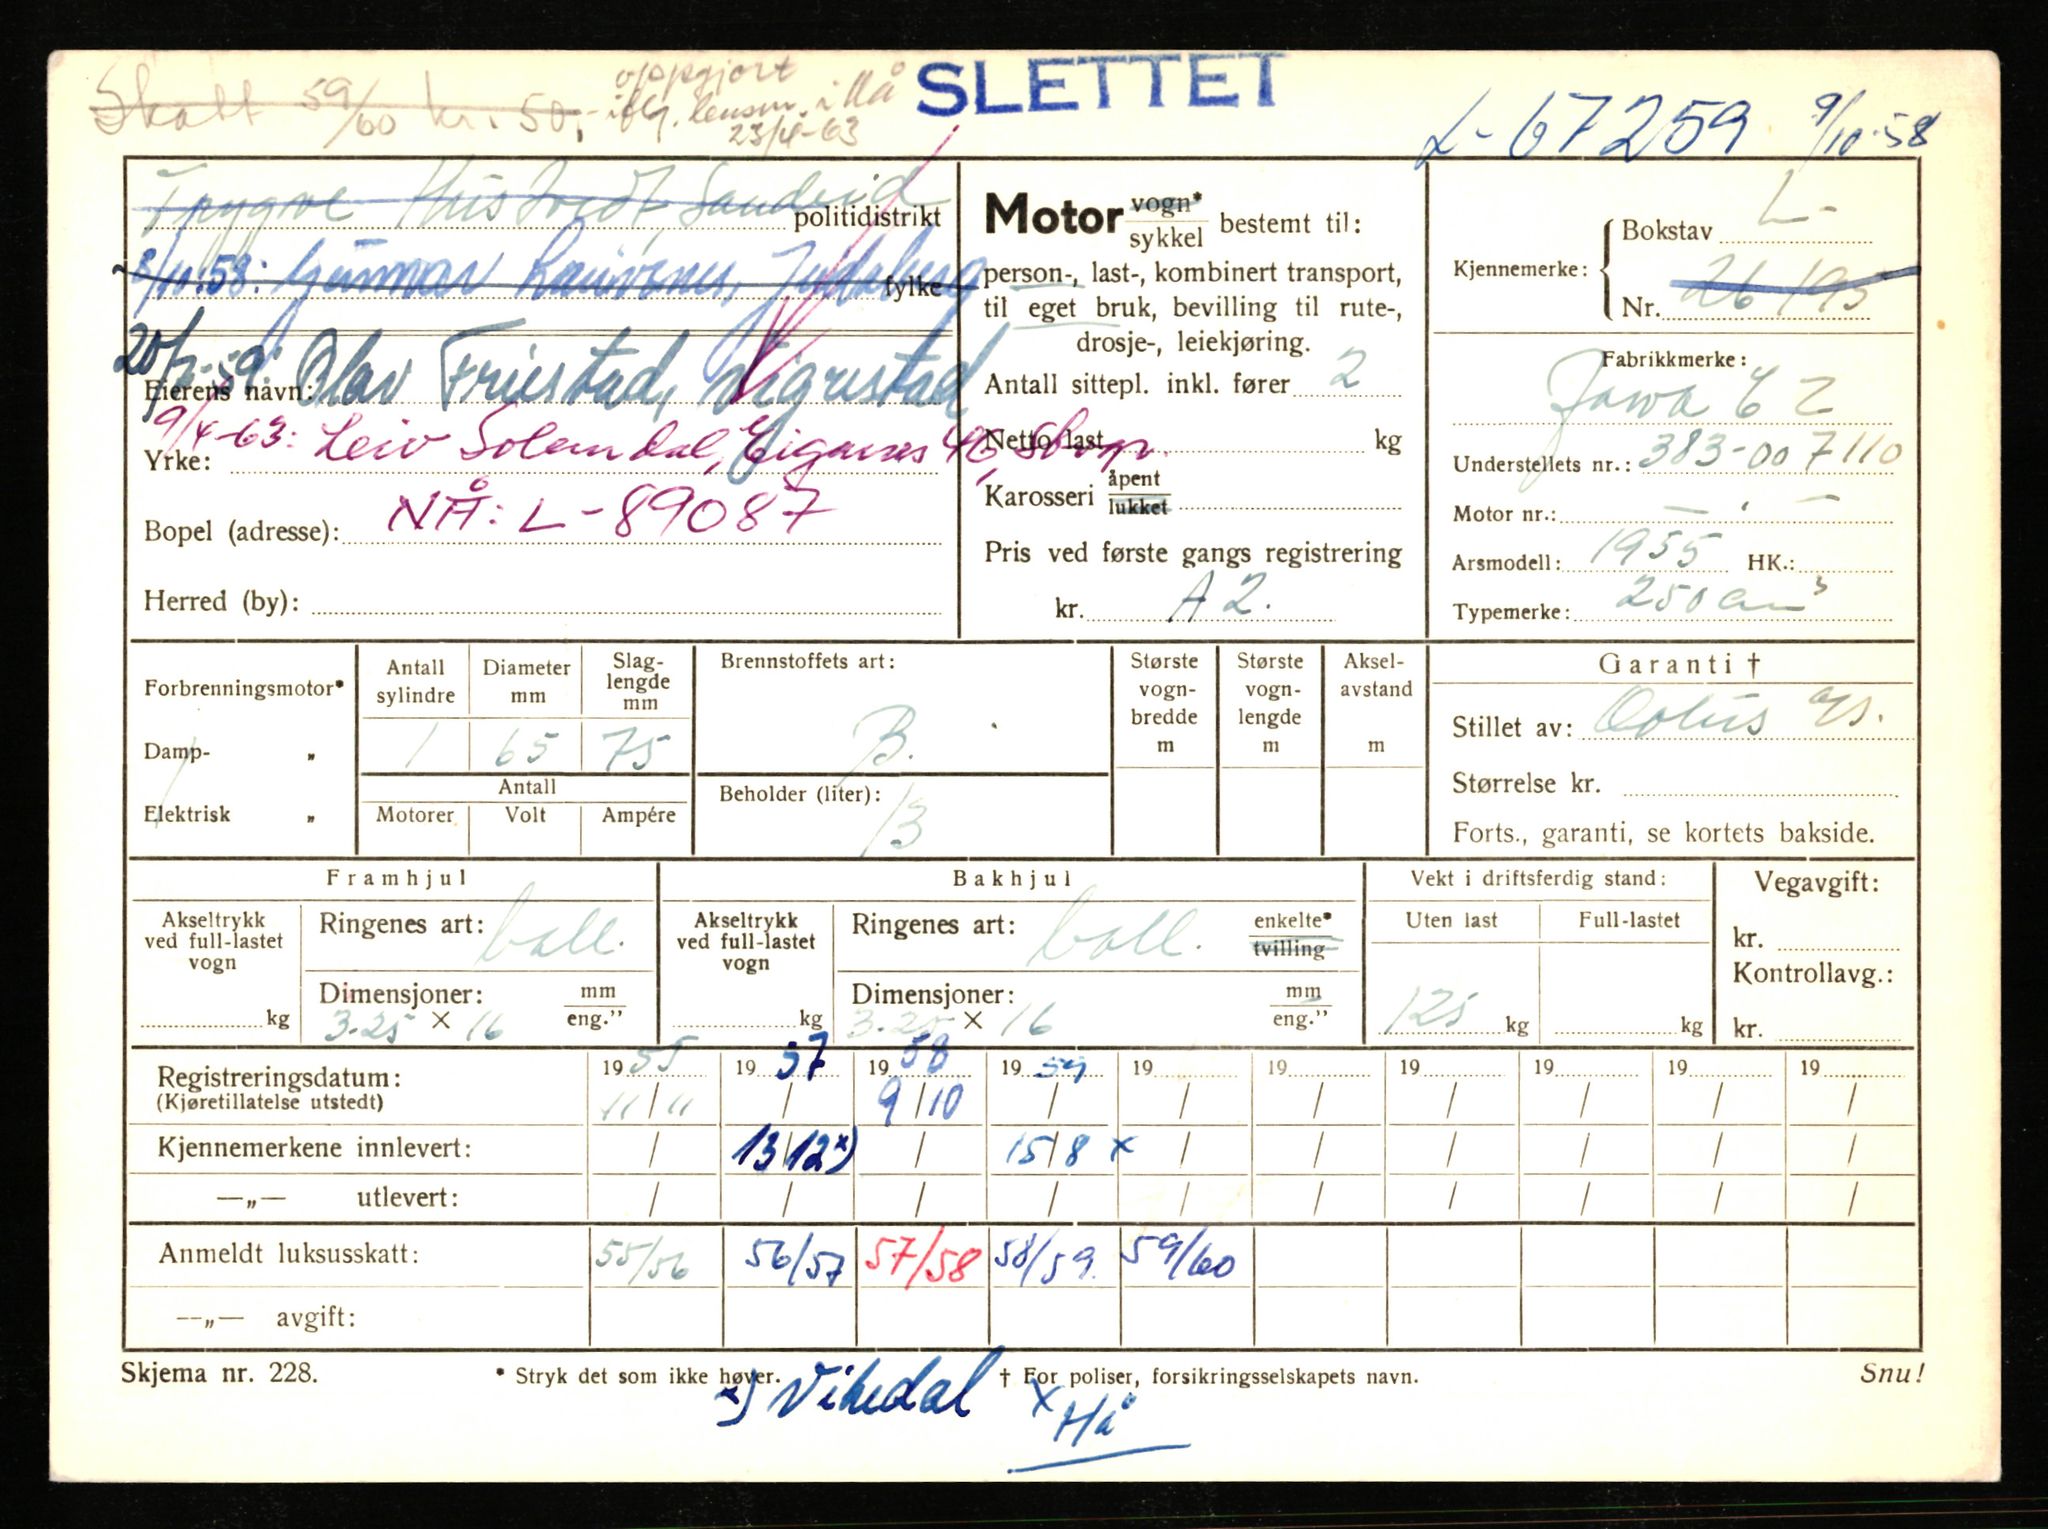 Skatt 59/60 kr. 50,- oppgjort
iflg. lensm. i Hå
23/4-63
SLETTET
L-67259 9/10-58
Trygve Hustvedt, Sandeid politidistrikt
9/10.58: Gunnar Lauvsnes, Judaberg fylke
20/7-59: Olav Friestad, Vigrestad
Eierens navn:
9/4-63: Leiv Solemdal, Eiganes 46, Stvgr.
Yrke:
NÅ: L-89087
Bopel (adresse):
Herred (by):
Motor vogn* sykkel bestemt til:
person-, last-, kombinert transport,
til eget bruk, bevilling til rute-,
drosje-, leiekjøring.
Antall sittepl. inkl. fører 2
Netto last kg
Karosseri åpent lukket
Pris ved første gangs registrering
kr. A 2.
Kjennemerke: Bokstav L-
Nr. 26195
Fabrikkmerke:
Jawa CZ
Understellets nr.: 383-007110
Motor nr.: — " —
Arsmodell: 1955 HK.:
Typemerke: 250 cm³
Forbrenningsmotor*
Damp- „
Elektrisk „
Antall sylindre 1
Diameter mm 65
Slag-lengde mm 75
Antall
Motorer Volt Ampére
Brennstoffets art:
B.
Beholder (liter):
13
Største vogn-bredde m
Største vogn-lengde m
Aksel-avstand m
Garanti †
Stillet av: a/s.
Størrelse kr.
Forts., garanti, se kortets bakside.
Framhjul
Akseltrykk ved full-lastet vogn kg
Ringenes art: ball.
Dimensjoner: mm eng."
3.25 × 16
Bakhjul
Akseltrykk ved full-lastet vogn kg
Ringenes art: ball. enkelte* tvilling
Dimensjoner: mm eng."
3.25 × 16
Vekt i driftsferdig stand:
Uten last Full-lastet
125 kg kg
Vegavgift:
kr.
Kontrollavg.:
kr.
Registreringsdatum: 1955 1957 1958 1959 19 19 19 19 19 19
(Kjøretillatelse utstedt) 11/11 / 9/10 / / / / / / /
Kjennemerkene innlevert: / 13/12 x) / 15/8 x / / / / / /
—„— utlevert: / / / / / / / / / /
Anmeldt luksusskatt: 55/56 56/57 57/58 58/59. 59/60
—„— avgift:
Skjema nr. 228. * Stryk det som ikke høver. † For poliser, forsikringsselskapets navn. Snu!
x) Vikedal x Hå